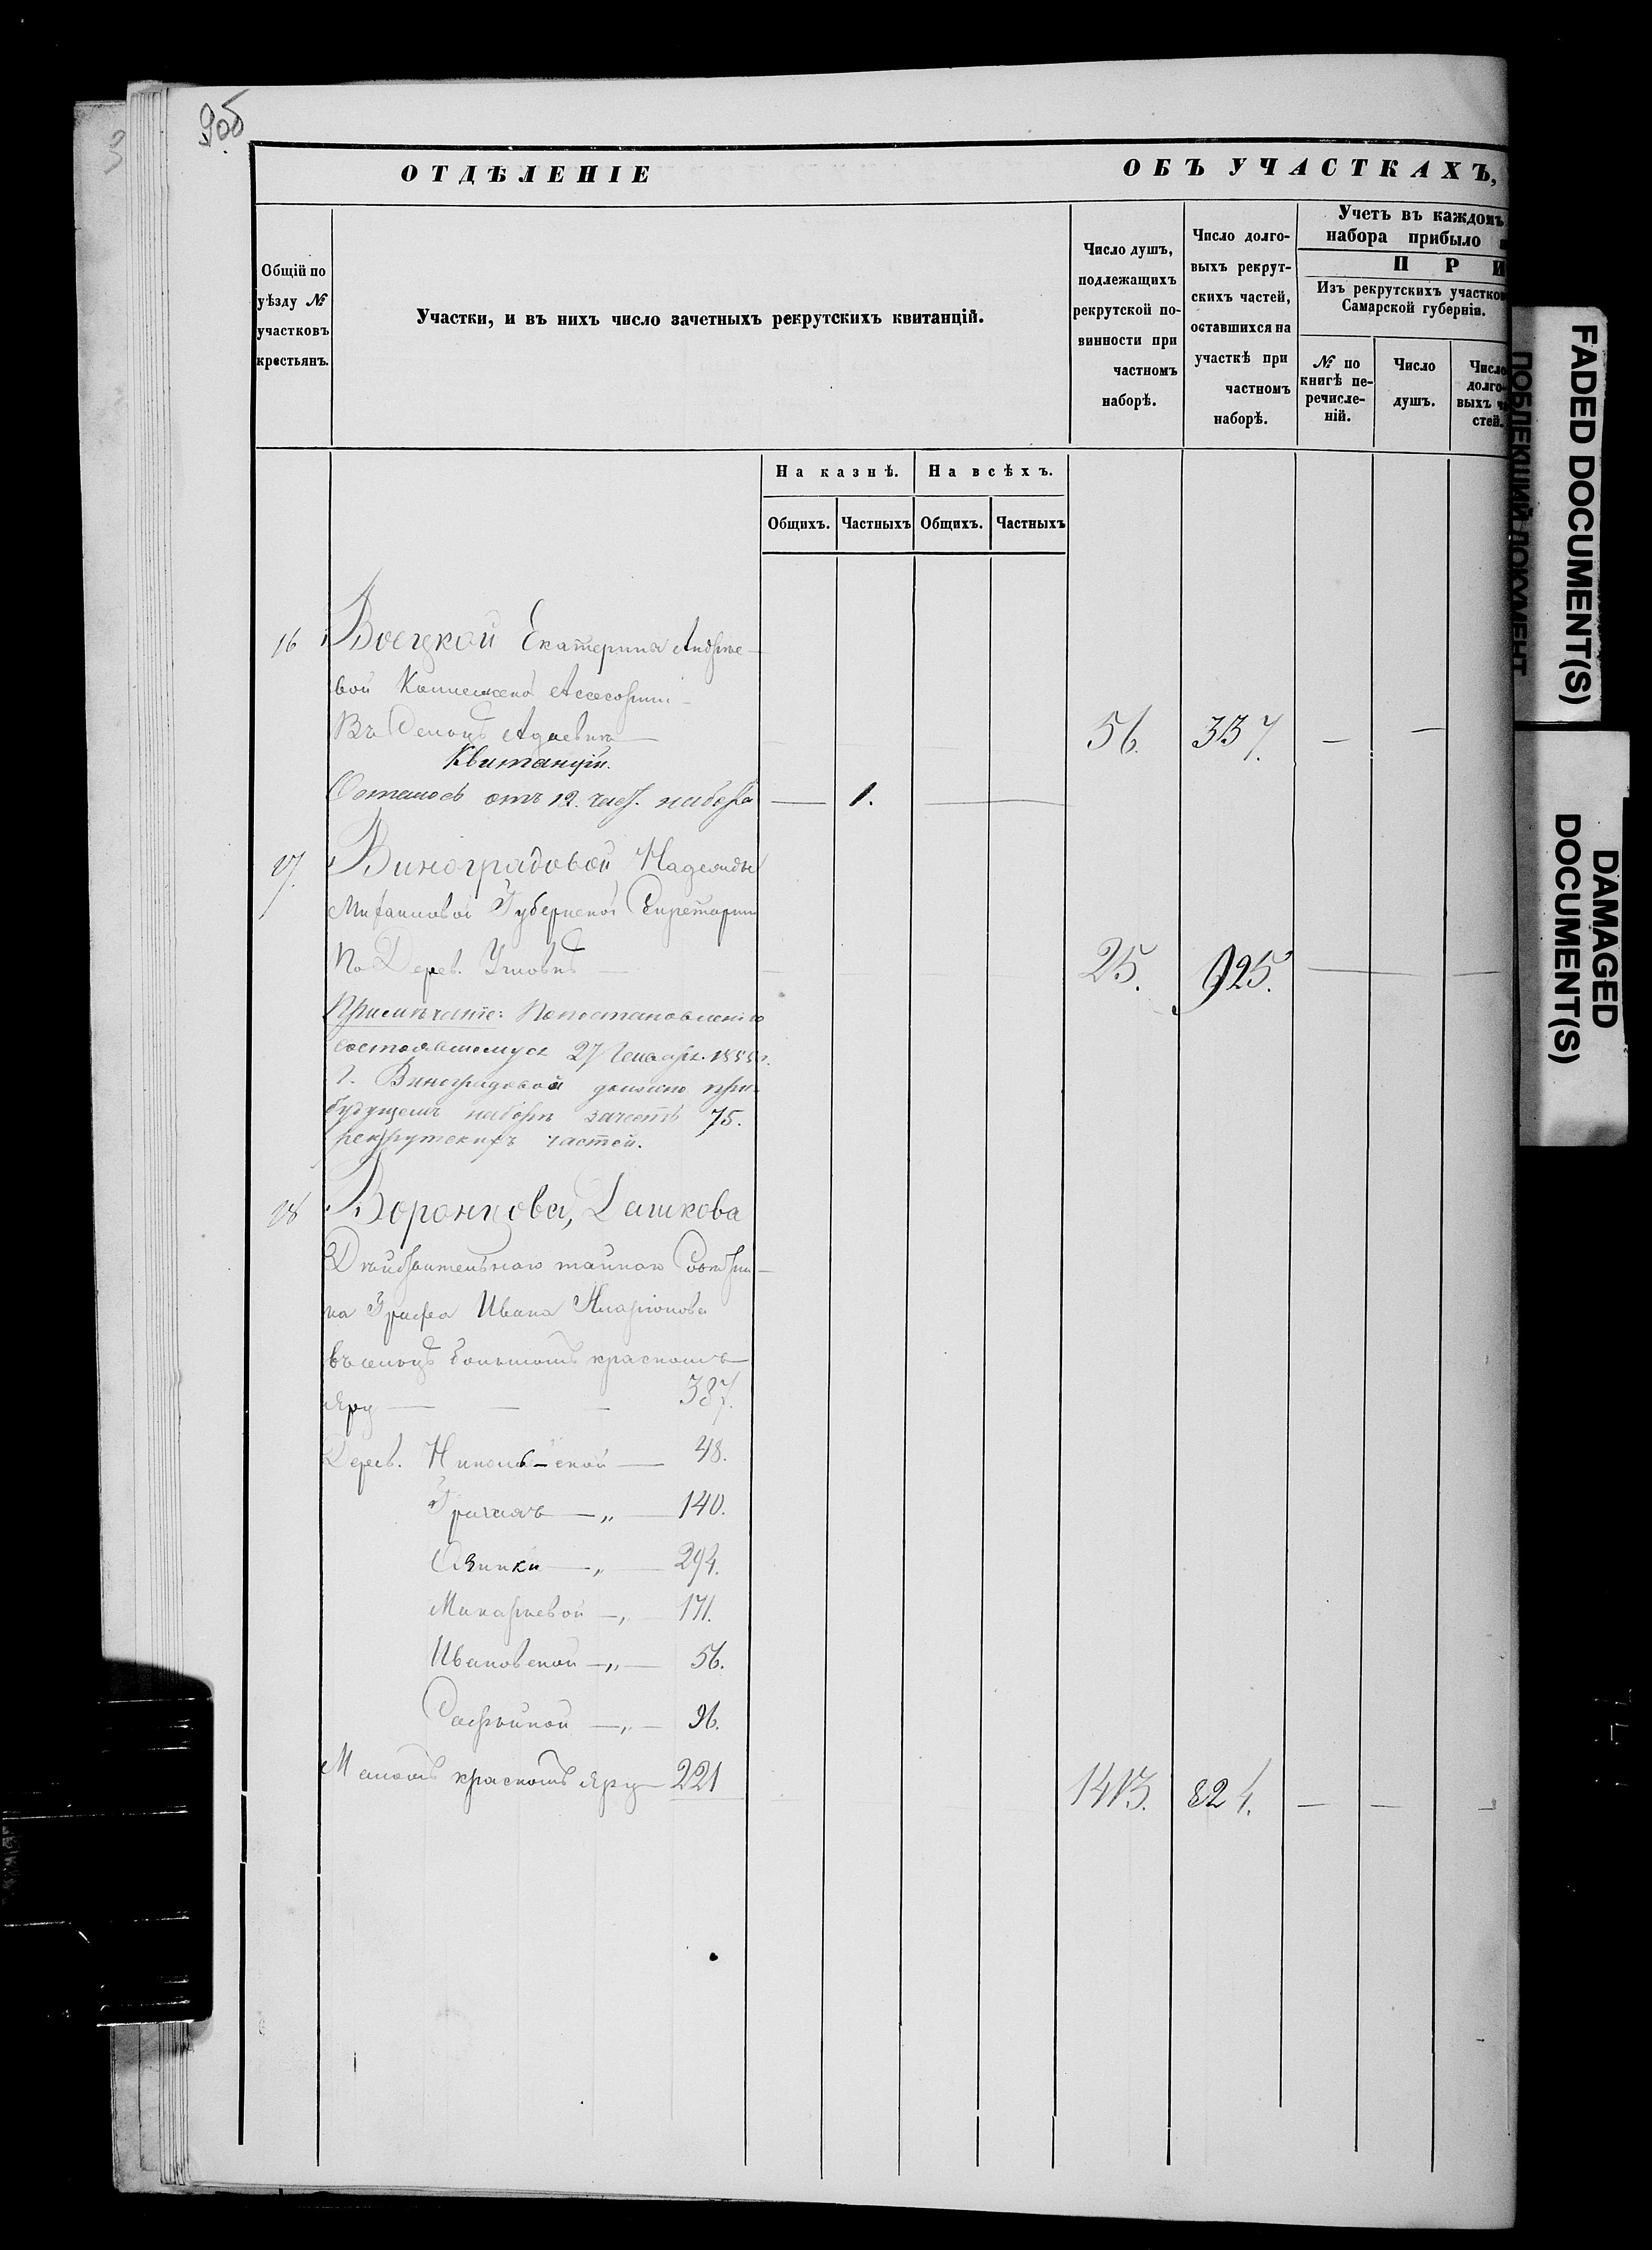 9об
3
ОТДѢЛЕНІЕ
ОБЪ УЧАСТКАХЪ,
Общій по уѣзду № участковъ крестьянъ.
Участки, и въ нихъ число зачетныхъ рекрутскихъ квитанцій.
Число душъ, подлежащихъ рекрутской повинности при частномъ наборѣ.
Число долговыхъ рекрутскихъ частей, оставшихся на участкѣ при частномъ наборѣ.
Учетъ въ каждомъ
набора прибыло
ПРИ
Изъ рекрутскихъ участков
Самарской губерніи.
№ по книгѣ перечисленій.
Число душъ.
Число долговыхъ частей.
На казнѣ.
На всѣхъ.
Общихъ.
Частныхъ
Общихъ.
Частныхъ
16 Воецкой Екатерины Андрѣе-
вой Коллежской Ассесорши
Въ Сельцѣ — 56. 337. — —
Квитанціи.
Осталось отъ 12. част. набора — 1. —
17. Виноградовой Надежды
Михайловой Губернской Секретарши
По Дерев. — 25. 925. — —
Примѣчаніе: По постановленію
состоявшемуся 27 Генваря. 1855 г.
Г. Виноградовой должно при
будущемъ наборѣ зачесть 75.
рекрутскихъ частей.
18 Воронцова, Дашкова
Дѣйствительнаго тайнаго Совѣтни-
ка Графа Ивана Иларіонова
въ сельцѣ большомъ красномъ
Яру — — — 387.
Дерев. Николь-ской — 48.
Грачахъ — „ — 140.
Озинки — „ — 294.
Макарьевой — „ — 171.
Ивановской — „ — 56.
— „ — 96.
Маломъ красномъ Яру — 221
1413. 824. — — —
FADED DOCUMENT(S)
ПОБЛЕКШИЙ ДОКУМЕНТ
DAMAGED
DOCUMENT(S)